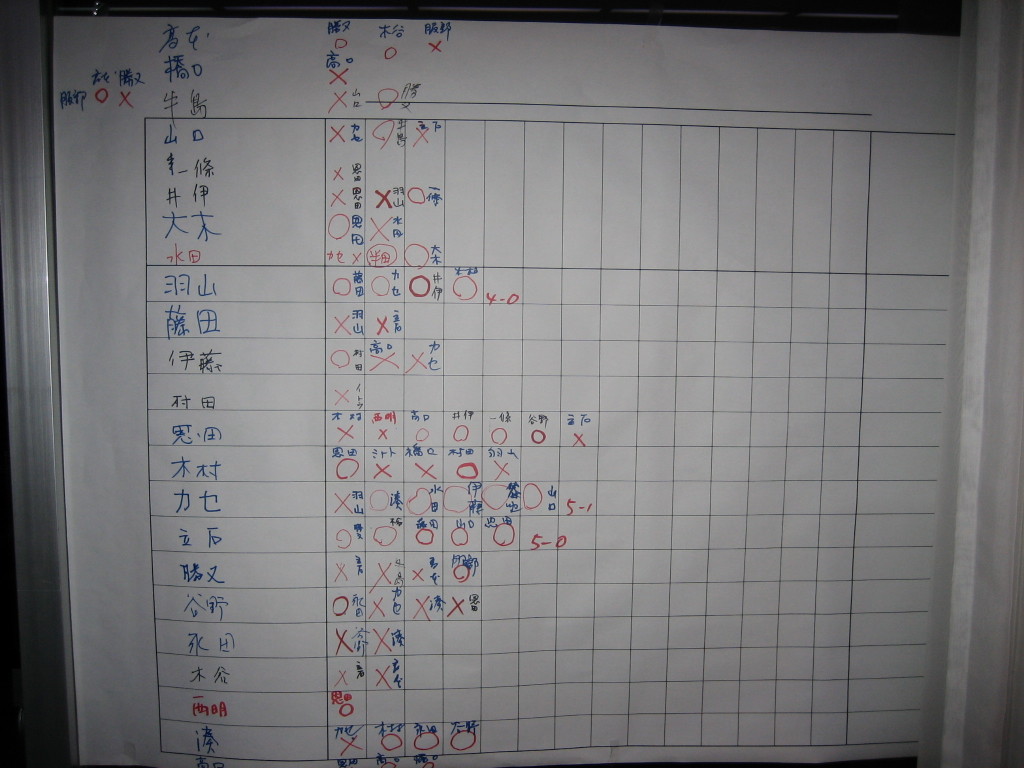 高木 勝又 ○ 木谷 ○ 服部 ×
橋口 高口 ×
服部 ○ 勝又 ×
牛島 × 山口 ○ 勝又
山口 × カセ ○ 牛島 × 立石
一條 × 恩田
井伊 × 恩田 × 羽山 ○ 一條
大木 ○ 恩田 × 水田
水田 カセ × 半田 ○ 大木
羽山 ○ 藤田 ○ カセ ○ 井伊 ○ 木村 4-0
藤田 × 羽山 × 立石
伊藤 ○ 村田 × 高口 × カセ
村田 × イトウ
恩田 木村 × 西明 × 高口 ○ 井伊 ○ 一條 ○ 谷野 ○ 立石 ×
木村 恩田 ○ ミナト × 橋口 × 村田 ○ 羽山 ×
カセ × 羽山 ○ 湊 ○ 水田 ○ 伊藤 ○ ○ 山口 5-1
立石 ○ ○ 藤田 ○ 山口 ○ 恩田 ○ 5-0
勝又 × 立石 × 牛島 × 高木 服部 ○
谷野 ○ 永田 × カセ × 湊 × 恩田
永田 × 谷野 × 湊
木谷 × 立石 × 高木
西明 恩田 ○
湊 カセ × 木村 ○ 永田 ○ 谷野 ○
高口 恩田 高口 橋口